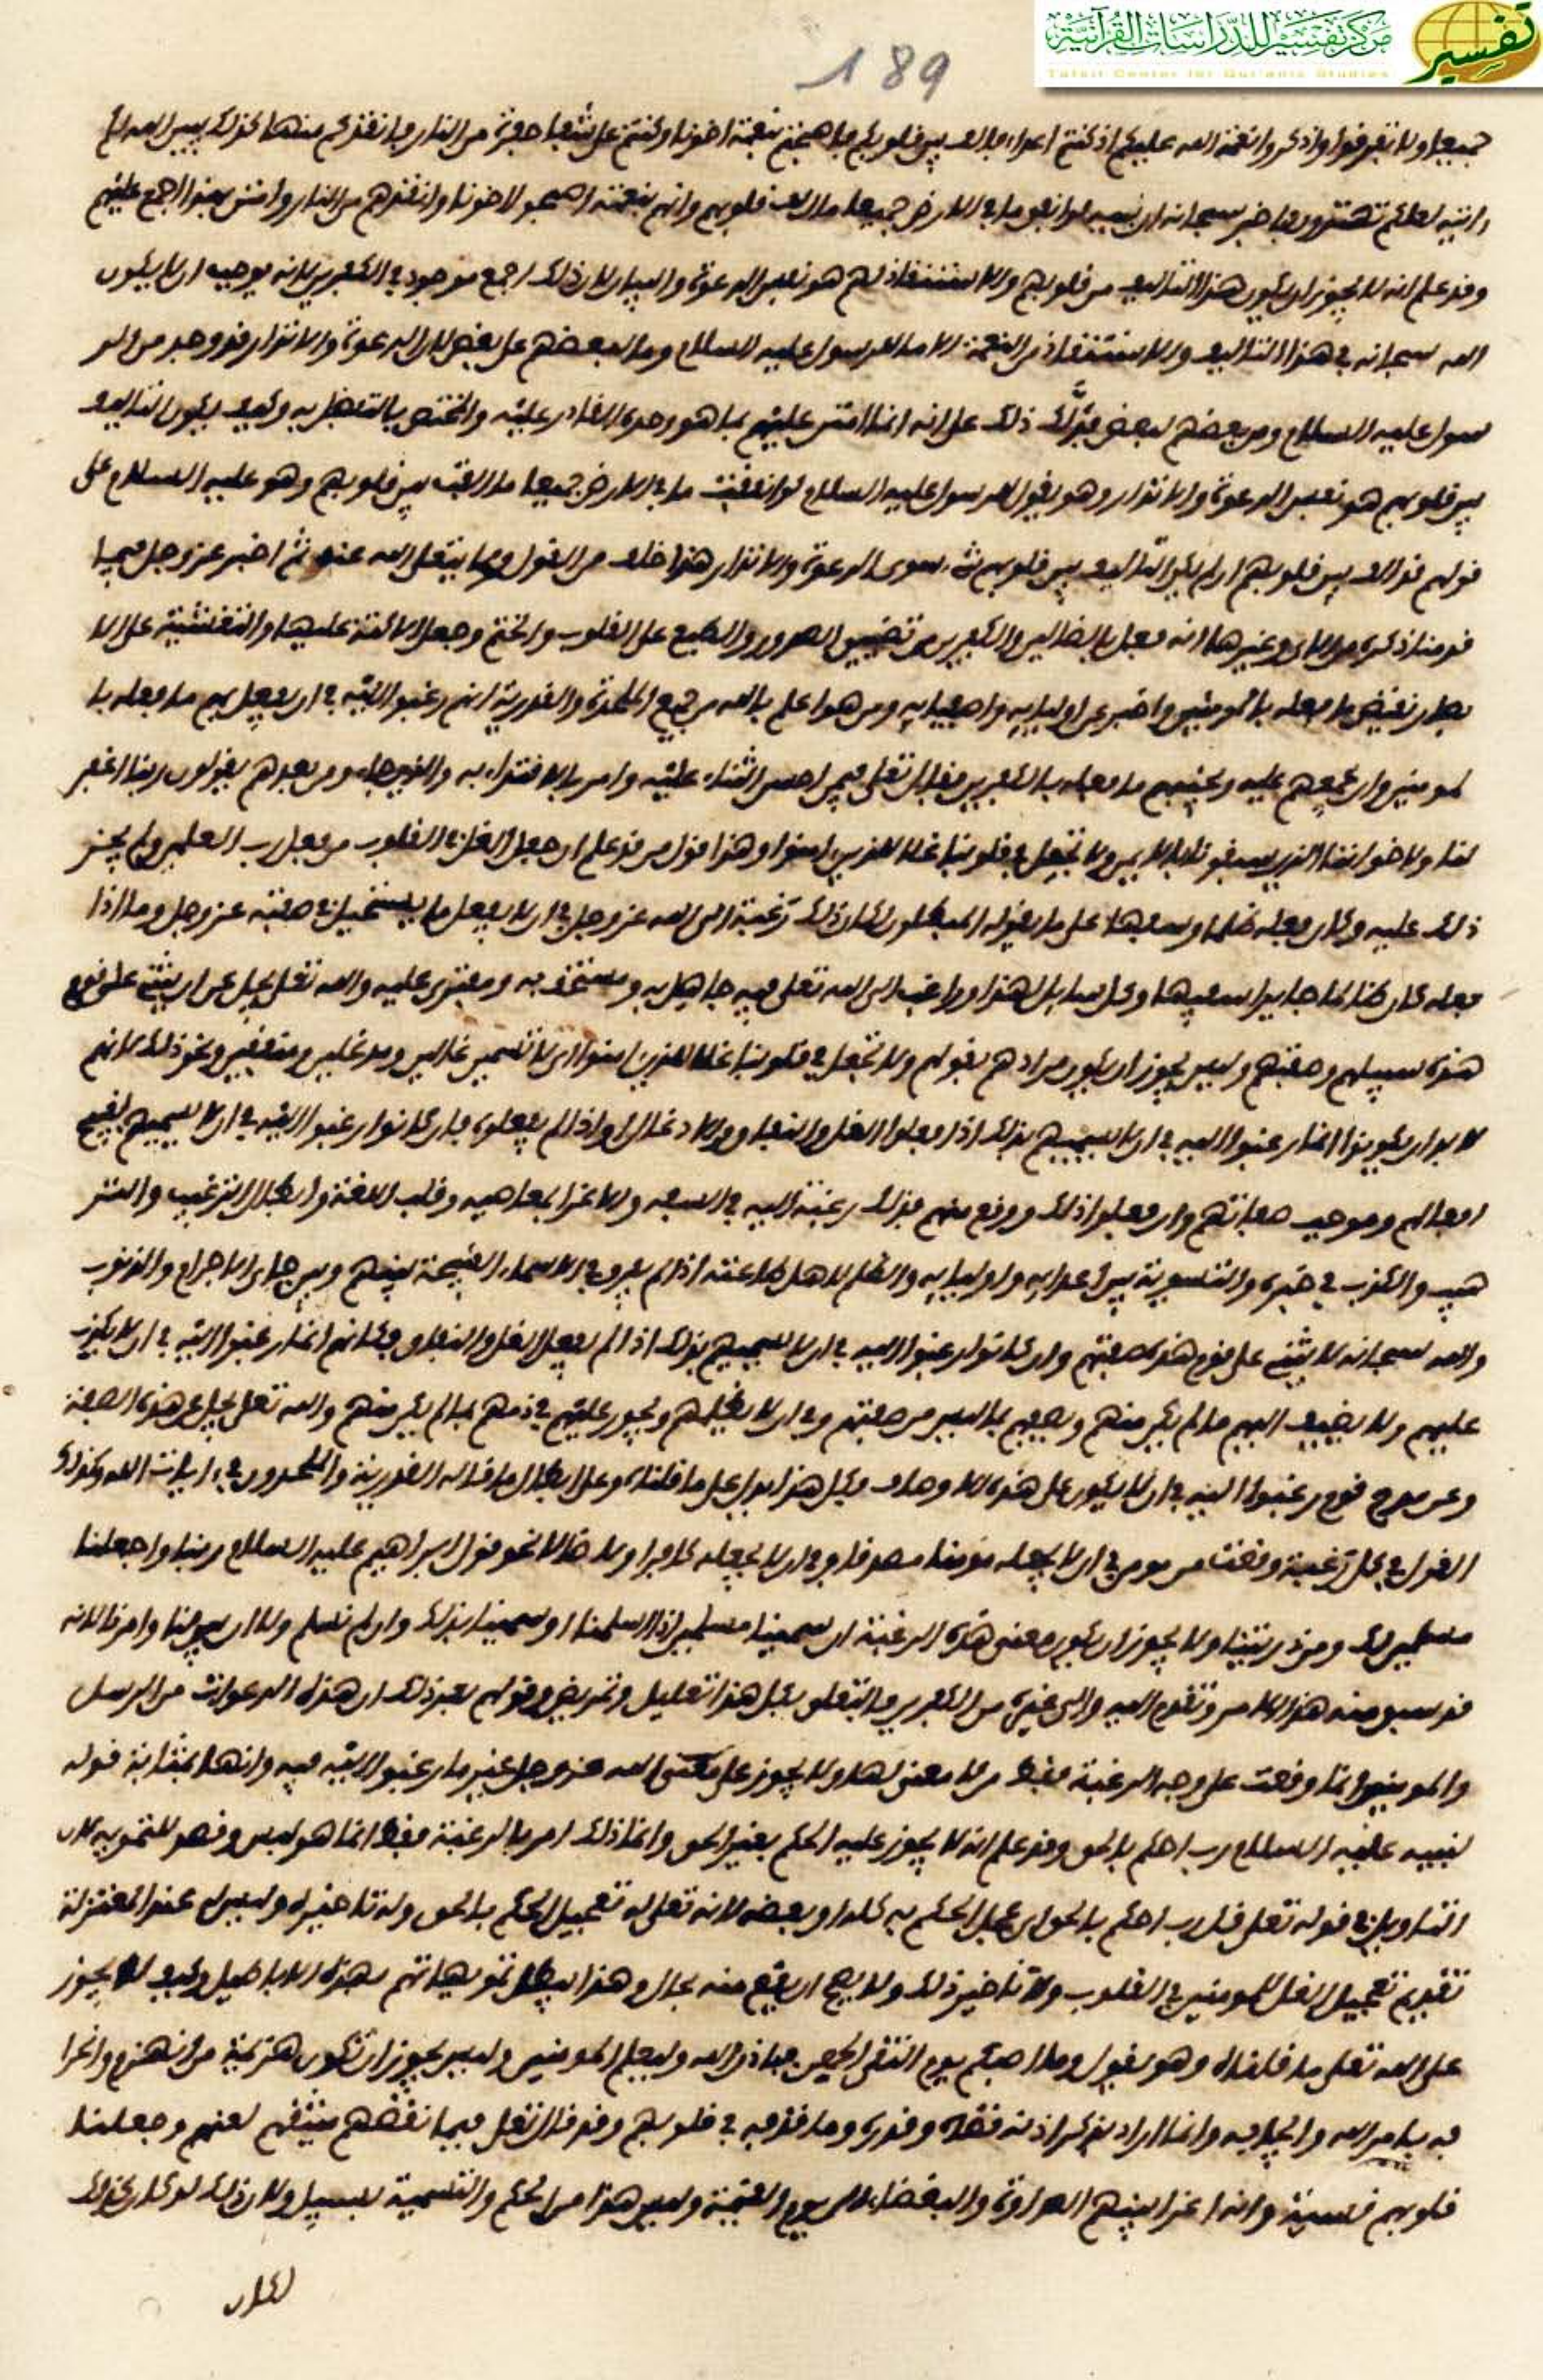 مركز تفسير للدراسات القرآنية
Tafsir Center for Qur'anic Studies
تفسير
189
جميعا ولا تفرقوا واذكروا نعمة الله عليكم اذ كنتم اعداء فالف بين قلوبكم فاصبحتم بنعمته اخونا وكنتم على شفا حفرة من النار فانقذكم منها كذلك يبين الله لكم
ءايته لعلكم تهتدون فاخبر سبحانه ان نبيه لو انفق ما في الارض جميعا ما الف قلوبهم وانهم بنعمته اصبحوا اخونا وانقذهم من النار وامتن بهذا اجمع عليهم
وقد علم انه لا يجوز ان يكون هذا التاليف من قلوبهم والاستنقاذ لهم هو نفس الدعوة والبيان لان ذلك اجمع موجود في الكفرين لانه يوجب ان لا يكون
الله سبحانه في هذا التاليف والاستنقاذ من النعمة الا ما للرسول عليه السلام وما لبعضهم على بعض لان الدعوة والانذار قد وجد من الر
سول عليه السلام ومن بعضهم لبعض فدل ذلك على انه انما امتن عليهم بما هو وحده القادر عليه والمختص بالتفضل به وكيف يكون التاليف
بين قلوبهم هو نفس الدعوة والانذار وهو يقول للرسول عليه السلام لو انفقت ما في الارض جميعا ما الفت بين قلوبهم وهو عليه السلام على
قولهم قد الف بين قلوبهم ان لم يكن التاليف بين قلوبهم شيء سوى الدعوة والانذار هذا خلف من القول وما يتعلى الله عنه ثم اخبر عز وجل فيما
قدمنا ذكره من الاي وغيرها انه فعل بالضالين والكفرين من تضييق الصدور والطبع على القلوب والختم وجعل الاكنة عليها والتغشية على الا
بصار نقيض ما فعله بالمومنين واخبر عن اوليايه واصفيايه ومن هو اعلم بالله من جميع الملحدة والقدرية انهم رغبوا اليه في ان يفعل بهم ما فعله با
لمومنين وان يجمعهم عليه ويجنبهم ما فعله بالكفرين فقال تعلى فيمن احسن الثناء عليه وامر بالاقتداء به والذين جاءو من بعدهم يقولون ربنا اغفر
لنا ولاخواننا الذين سبقونا بالايمن ولا تجعل في قلوبنا غلا للذين امنوا وهذا قول من قد علم ان جعل الغل في القلوب من فعل رب العلمين ولو لم يجز
ذلك عليه وكان فعله ظلما وسفها على ما يقوله المبطلون لكان ذلك رغبة الى الله عز وجل في ان لا يفعل ما يستحيل في صفته عز وجل وما اذا
فعله كان ظالما جايرا سفيها وكل سايل لهذا وراغب الى الله تعلى فيه جاهل به ومستخف به ومفتري عليه والله تعلى يجل عن ان يثني على قوم
هذه سبيلهم وصفتهم وليس يجوز ان يكون مرادهم بقولهم ولا تجعل في قلوبنا غلا للذين امنوا اي لا تسمهم غالين ومدغلين ومنافقين ونحو ذلك لانهم
لا بد ان يكونوا انما رغبوا اليه في ان لا يسميهم بذلك اذا فعلوا الغل والنفاق والادغال او اذا لم يفعلوه فان كانوا رغبوا اليه في ان لا يسميهم بقبيح
افعالهم وموجب صفاتهم وان فعلوا ذلك ووقع منهم فذلك رغبة اليه في السفه والاغرا بمعاصيه وقلب اللغة وابطال الترغيب والتر
هيب والكذب في خبره والتسوية بين اعدايه واوليايه والظلم لاهل طاعته اذا لم يفرق في الاسماء القبيحة بينهم وبين اهل الاجرام والذنوب
والله سبحانه لا يثني على قوم هذه صفتهم وان كانوا رغبوا اليه في ان لا يسميهم بذلك اذا لم يفعلوا الغل والنفاق فكانهم انما رغبوا اليه في ان لا يكذب
عليهم ولا يضيف اليهم ما لم يكن منهم ويصفهم بما ليس من صفتهم وفي ان لا يظلمهم ويجور عليهم في ذمهم بما لم يكن منهم والله تعلى يجل عن هذه الصفة
وعن مدح قوم رغبوا اليه في ان لا يكون على هذه الاوصاف فكل هذا يدل على ما قلناه وعلى ابطال ما قاله القدرية والملحدون في ايات الله وكذلك
القول في كل رغبة وقعت من مومن في ان يجعله مومنا مصدقا وفي ان لا يجعله كافرا ولا ضالا نحو قول ابراهيم عليه السلام ربنا واجعلنا
مسلمين لك ومن ذريتنا ولا يجوز ان يكون معنى هذه الرغبة ان سمينا مسلمين اذا اسلمنا او سمينا بذلك وان لم نسلم ولا ان سهل لنا وامرنا لانه
قد سبق منه هذا الامر وتقدم اليه والى غيره من الكفرين فالتعلق بمثل هذا تعليل وتمريض وقولهم بعد ذلك ان هذه الدعوات من الرسل
والمومنين انما وقعت على وجه الرغبة فقط من لا معنى لها ولا يجوز على الله عز وجل غير ما رغبوا اليه فيه وانها بمثابة قوله
لنبيه عليه السلام رب احكم بالحق وقد علم انه لا يجوز عليه الحكم بغير الحق وانما ذلك امر بالرغبة فقط انما هو لبس وقصد للتمويه لان
التاويل في قوله تعلى قل رب احكم بالحق اي عجل الحكم به كله او بعضه لانه تعلى له تعجيل الحكم بالحق وله تاخيره وليس له عند المعتزلة
تقديم تعجيل الغل للمومنين في القلوب ولا تاخير ذلك ولا يصح ان يقع منه بحال وهذا يبطل تمويهاتهم بهذه الاباطيل وكيف لا يجوز
على الله تعلى ما قلناه وهو يقول وما اصبكم يوم التقى الجمعن فباذن الله وليعلم المومنين وليس يجوز ان تكون هزيمة من انهزم وانخزا
له بامر الله وايجابه وانما اراد بذكر اذنه قضاه وقدره وما قذفه في قلوبهم وقد قال تعلى فبما نقضهم ميثقهم لعنهم وجعلنا
قلوبهم قسية وانه اغرا بينهم العداوة والبغضاء الى يوم القيمة وليس هذا من الحكم والتسمية بسبيل ولان ذلك لو كان كذلك
لكان